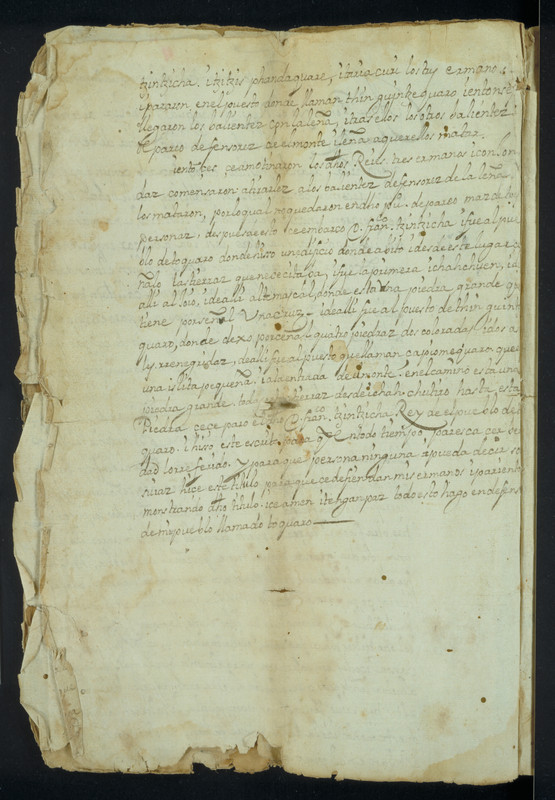 tzintzicha. itzitzis phandaquare, itariacuri los tres ermanos
separaron, en el puesto donde llaman thinquintzequaro ientonses
llegaron los balientez con la leña, itras ellos los otros balientez
de pareo defensorez de el monte ileña aquerellos matar.
ientonses ce amotinaron los dhos Reiis tres ermanos icon, on
daz comensaron atirarlez alos balientez defensorez de la leña, i
los mataron, por lo qual se quedaron en dho pu.o de pareo maz de
personaz, despues de esto ce embarco D. fran.co tzintzicha ifue al pue
blo de toquaro donde hiso un edificio donde abitó idesde este lugar ce
ñalo las tierraz que nececitaba, ifue la primera ichachuen, i de
alli al sois, ide alli al temascal, donde esta una piedra grande q.e
tiene por señal Una Cruz - ide alli fue al puesto de thinquintze
quaro, donde dexo por señal quatro piedraz dos coloradas idos a
ly rrenegridaz, de alli fue al puesto que llaman capiomequaro, que es
una islita pequeña, i a la entrada de un monte. en el camino esta una
piedra grande. toda tierraz desde ichah.chutiro hasta esta
Piedra cece paro el dho D. fran.co tzintzicha Rey de el pueblo de to
quaro. ihiso este escrito para q.e en todo tiempo paresca cer ver
dad lo rreferido. y para que persona ninguna apueda decir so
suiaz hice este titulo para que ce defiendan mis ermanos i parientes
menstrando dho titulo. ice amen itengan paz todo esto hago en defensa
de mi pueblo llamado toquaro